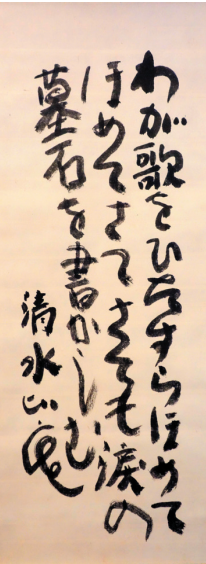 わが歌をひたすらほめて
ほめてさてさても涙の
墓石を書かしむ
清水比庵